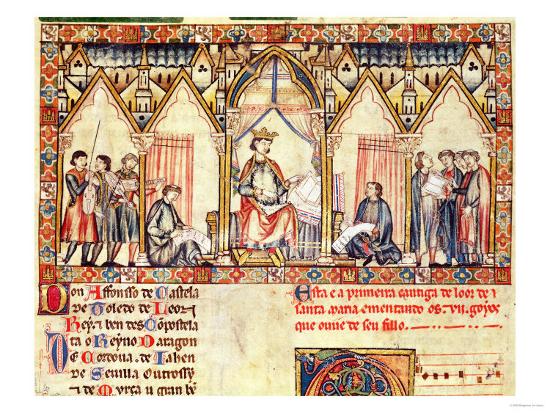 Don Affonsso de Castela
de Toledo de Leon
Rey τ ben des Conpostela
ta o Reyno Daragon
De Cordova de Jahen
de Sevilla Outrossy
τ de Murça u gran be
Esta e a primeira cantiga de loor de
santa maria ementando os .vii. goyos
que ouue de seu fillo.